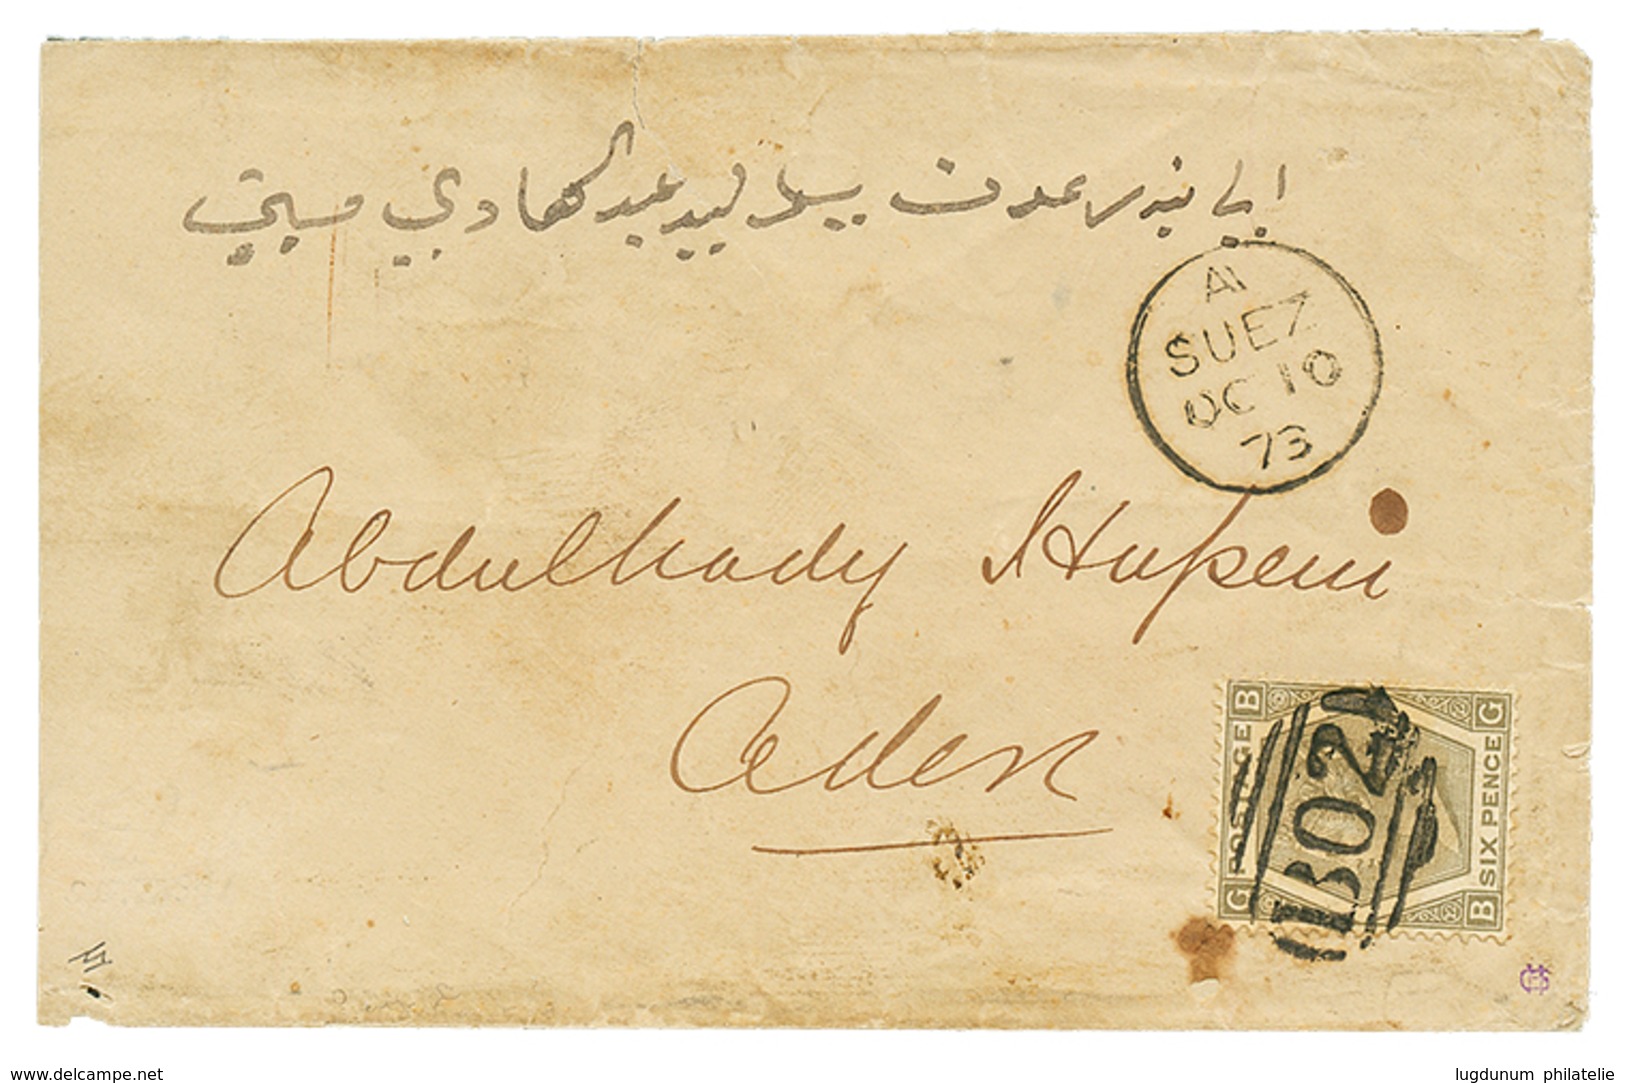 الي بندر عدن بيد السيد عبد الهادي
A
SUEZ
OC 10
73
Abdulhady Hussein
Aden
B G
POSTAGE
SIX PENCE
G B
B02
www.delcampe.net
lugdunum philatelie